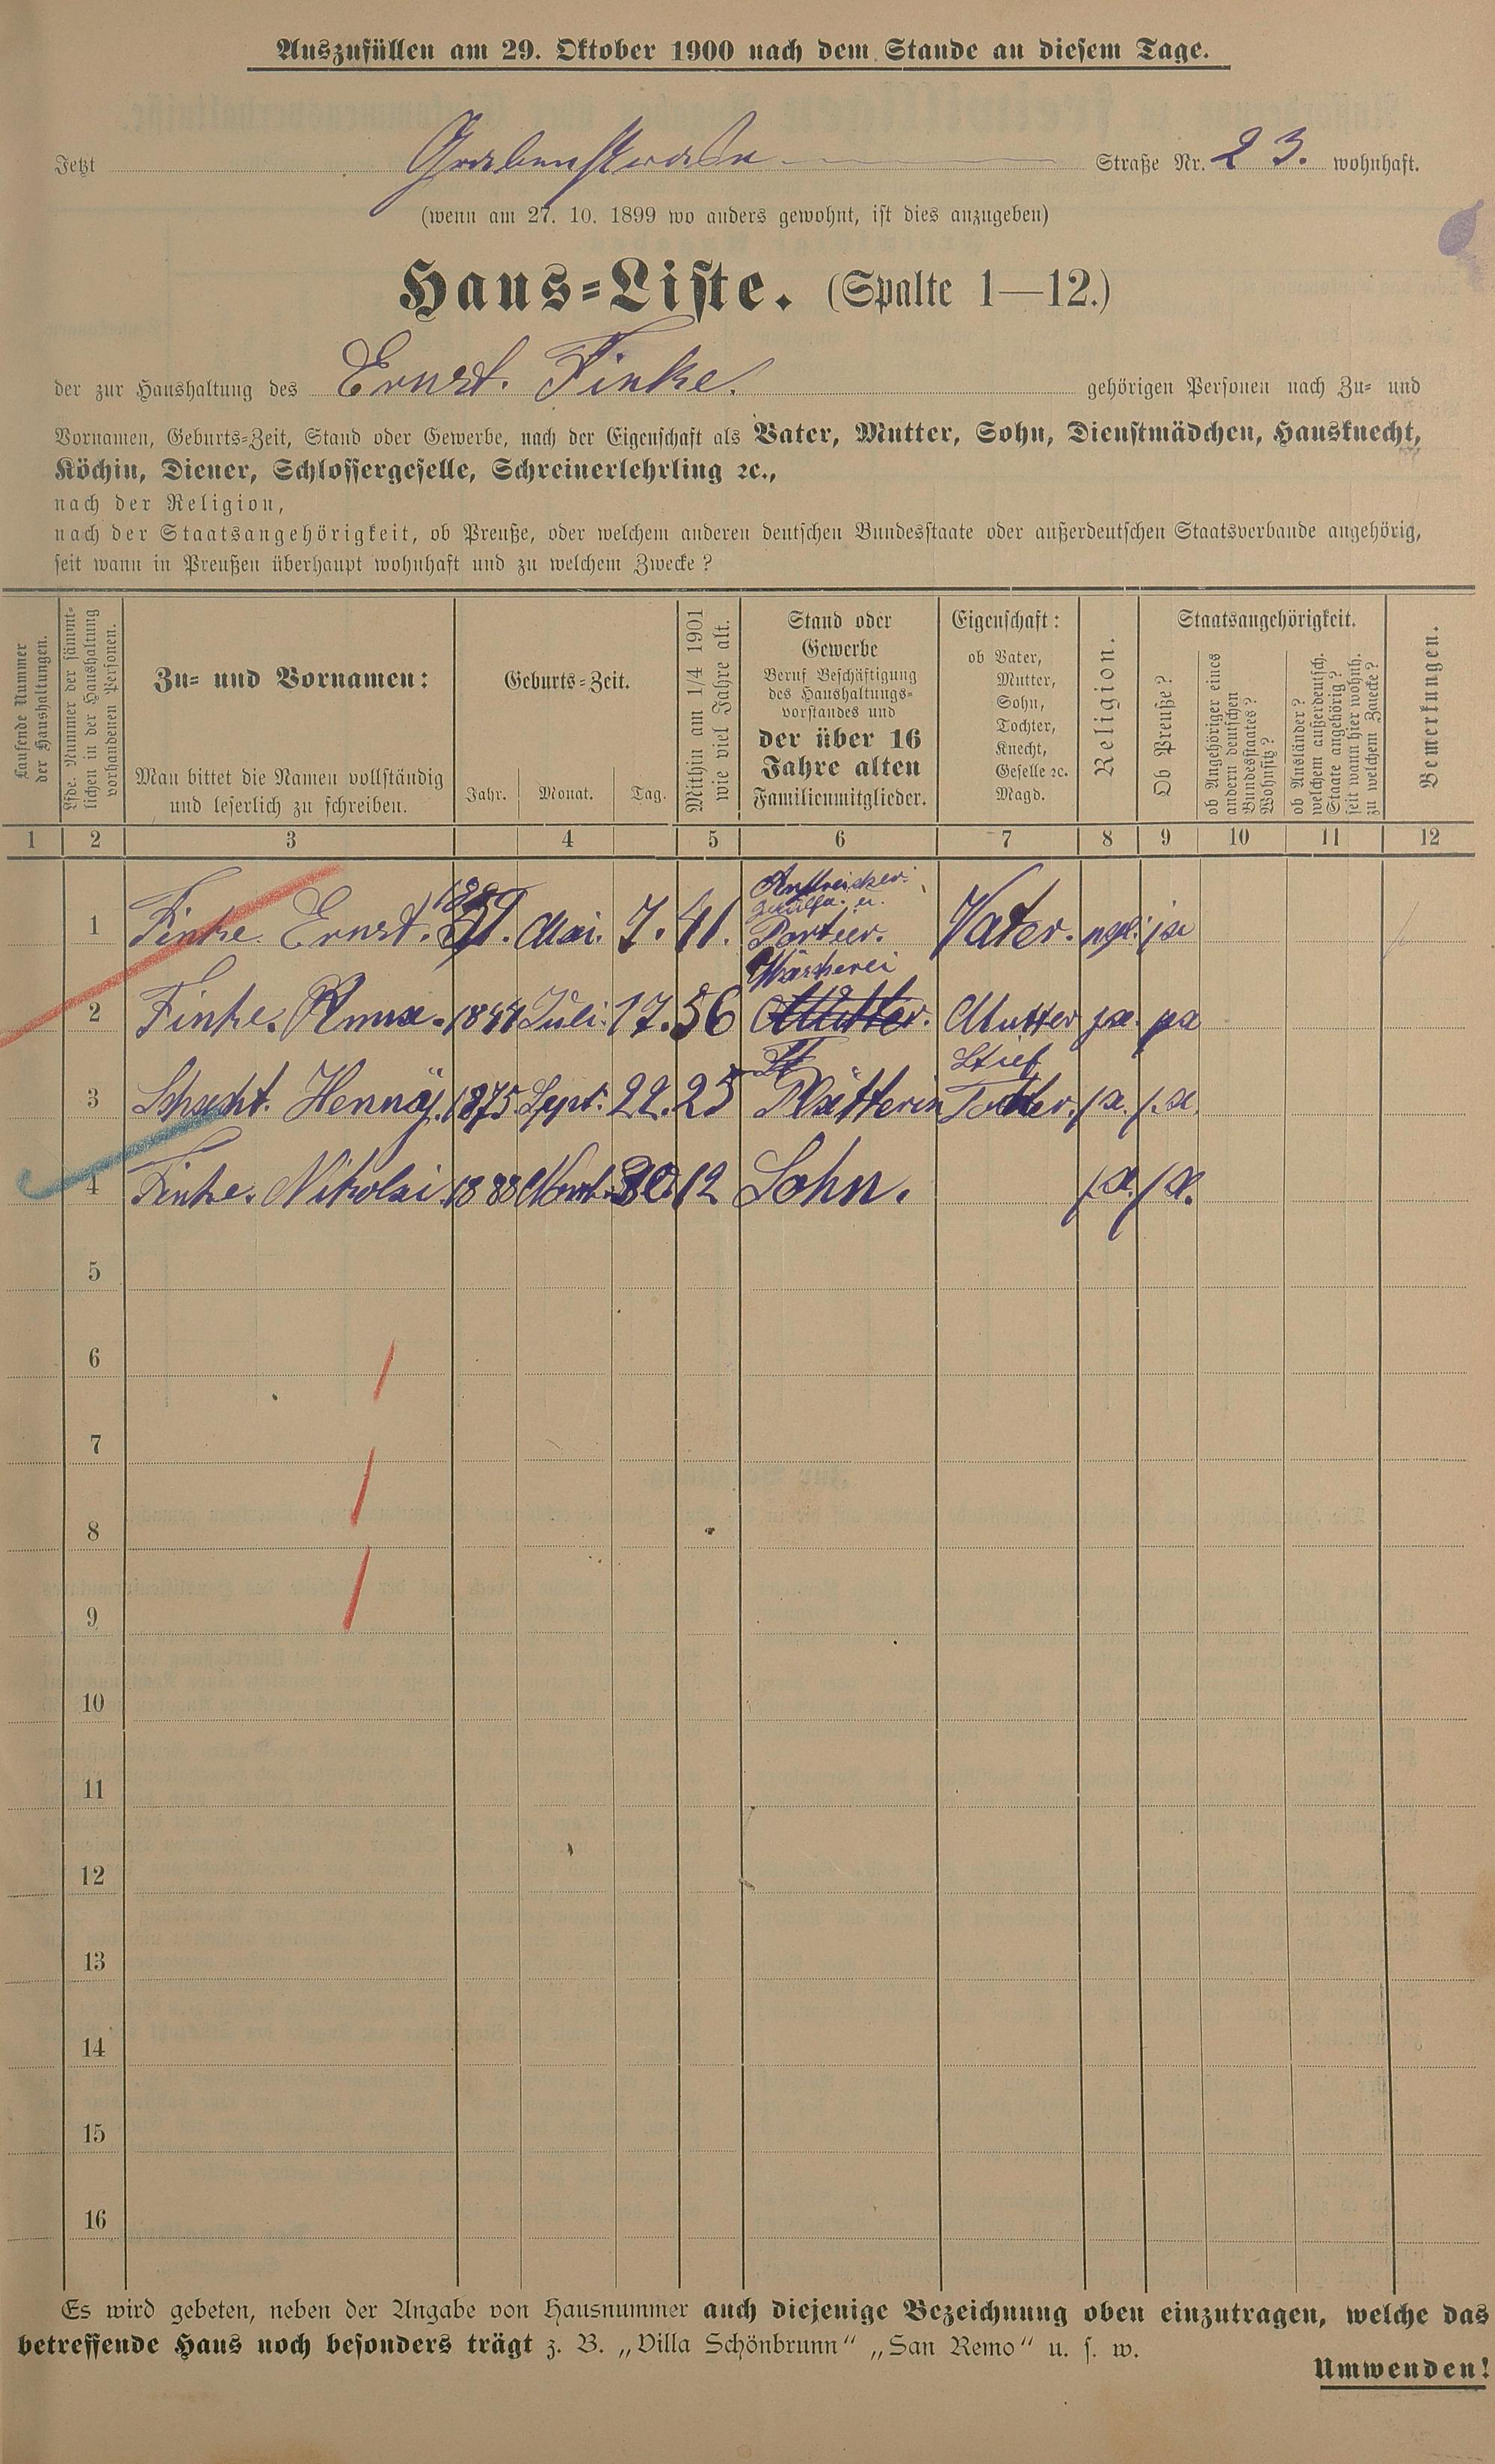 Auszufüllen am 29. Oktober 1900 nach dem Stande an diesem Tage.
Jetzt Grabenstrasse Straße Nr. 23. wohnhaft.
(wenn am 27. 10. 1899 wo anders gewohnt, ist dies anzugeben)
Haus-Liste. (Spalte 1—12.)
der zur Haushaltung des Ernst. Finke. gehörigen Personen nach Zu- und
Vornamen, Geburts-Zeit, Stand oder Gewerbe, nach der Eigenschaft als Vater, Mutter, Sohn, Dienstmädchen, Hausknecht,
Köchin, Diener, Schlossergeselle, Schreinerlehrling ꝛc.,
nach der Religion,
nach der Staatsangehörigkeit, ob Preuße, oder welchem anderen deutschen Bundesstaate oder außerdeutschen Staatsverbande angehörig,
seit wann in Preußen überhaupt wohnhaft und zu welchem Zwecke?
Laufende Nummer
der Haushaltungen.
Lfde. Nummer der sämmt-
lichen in der Haushaltung
vorhandenen Personen.
Zu- und Vornamen:
Man bittet die Namen vollständig
und leserlich zu schreiben.
Geburts-Zeit.
Jahr. Monat. Tag.
Mithin am 1/4 1901
wie viel Jahre alt.
Stand oder
Gewerbe
Beruf Beschäftigung
des Haushaltungs-
vorstandes und
der über 16
Jahre alten
Familienmitglieder.
Eigenschaft:
ob Vater,
Mutter,
Sohn,
Tochter,
Knecht,
Geselle ꝛc.
Magd.
Religion.
Staatsangehörigkeit.
Ob Preuße?
ob Angehöriger eines
andern deutschen
Bundesstaates?
Wohnsitz?
ob Ausländer?
welchem außerdeutsch.
Staate angehörig?
seit wann hier wohnh.
zu welchem Zwecke?
Bemerkungen.
1 2 3 4 5 6 7 8 9 10 11 12
Anstreicher
1 Finke. Ernst. 59. Mai. 7. 41. Portier. Vater. ja
Wäscherei
2 Finke. Anna. 1844 Juli. 17. 56 Mutter. Mutter ja. ja
Stief
3 Schacht. Henny. 1875. Sept. 22. 25 Plätterin Tochter. ja. ja.
4 Finke. Nikolai. 1888 30. 12 Sohn. ja. ja.
5
6
7
8
9
10
11
12
13
14
15
16
Es wird gebeten, neben der Angabe von Hausnummer auch diejenige Bezeichnung oben einzutragen, welche das
betreffende Haus noch besonders trägt z. B. „Villa Schönbrunn“ „San Remo“ u. s. w.
Umwenden!